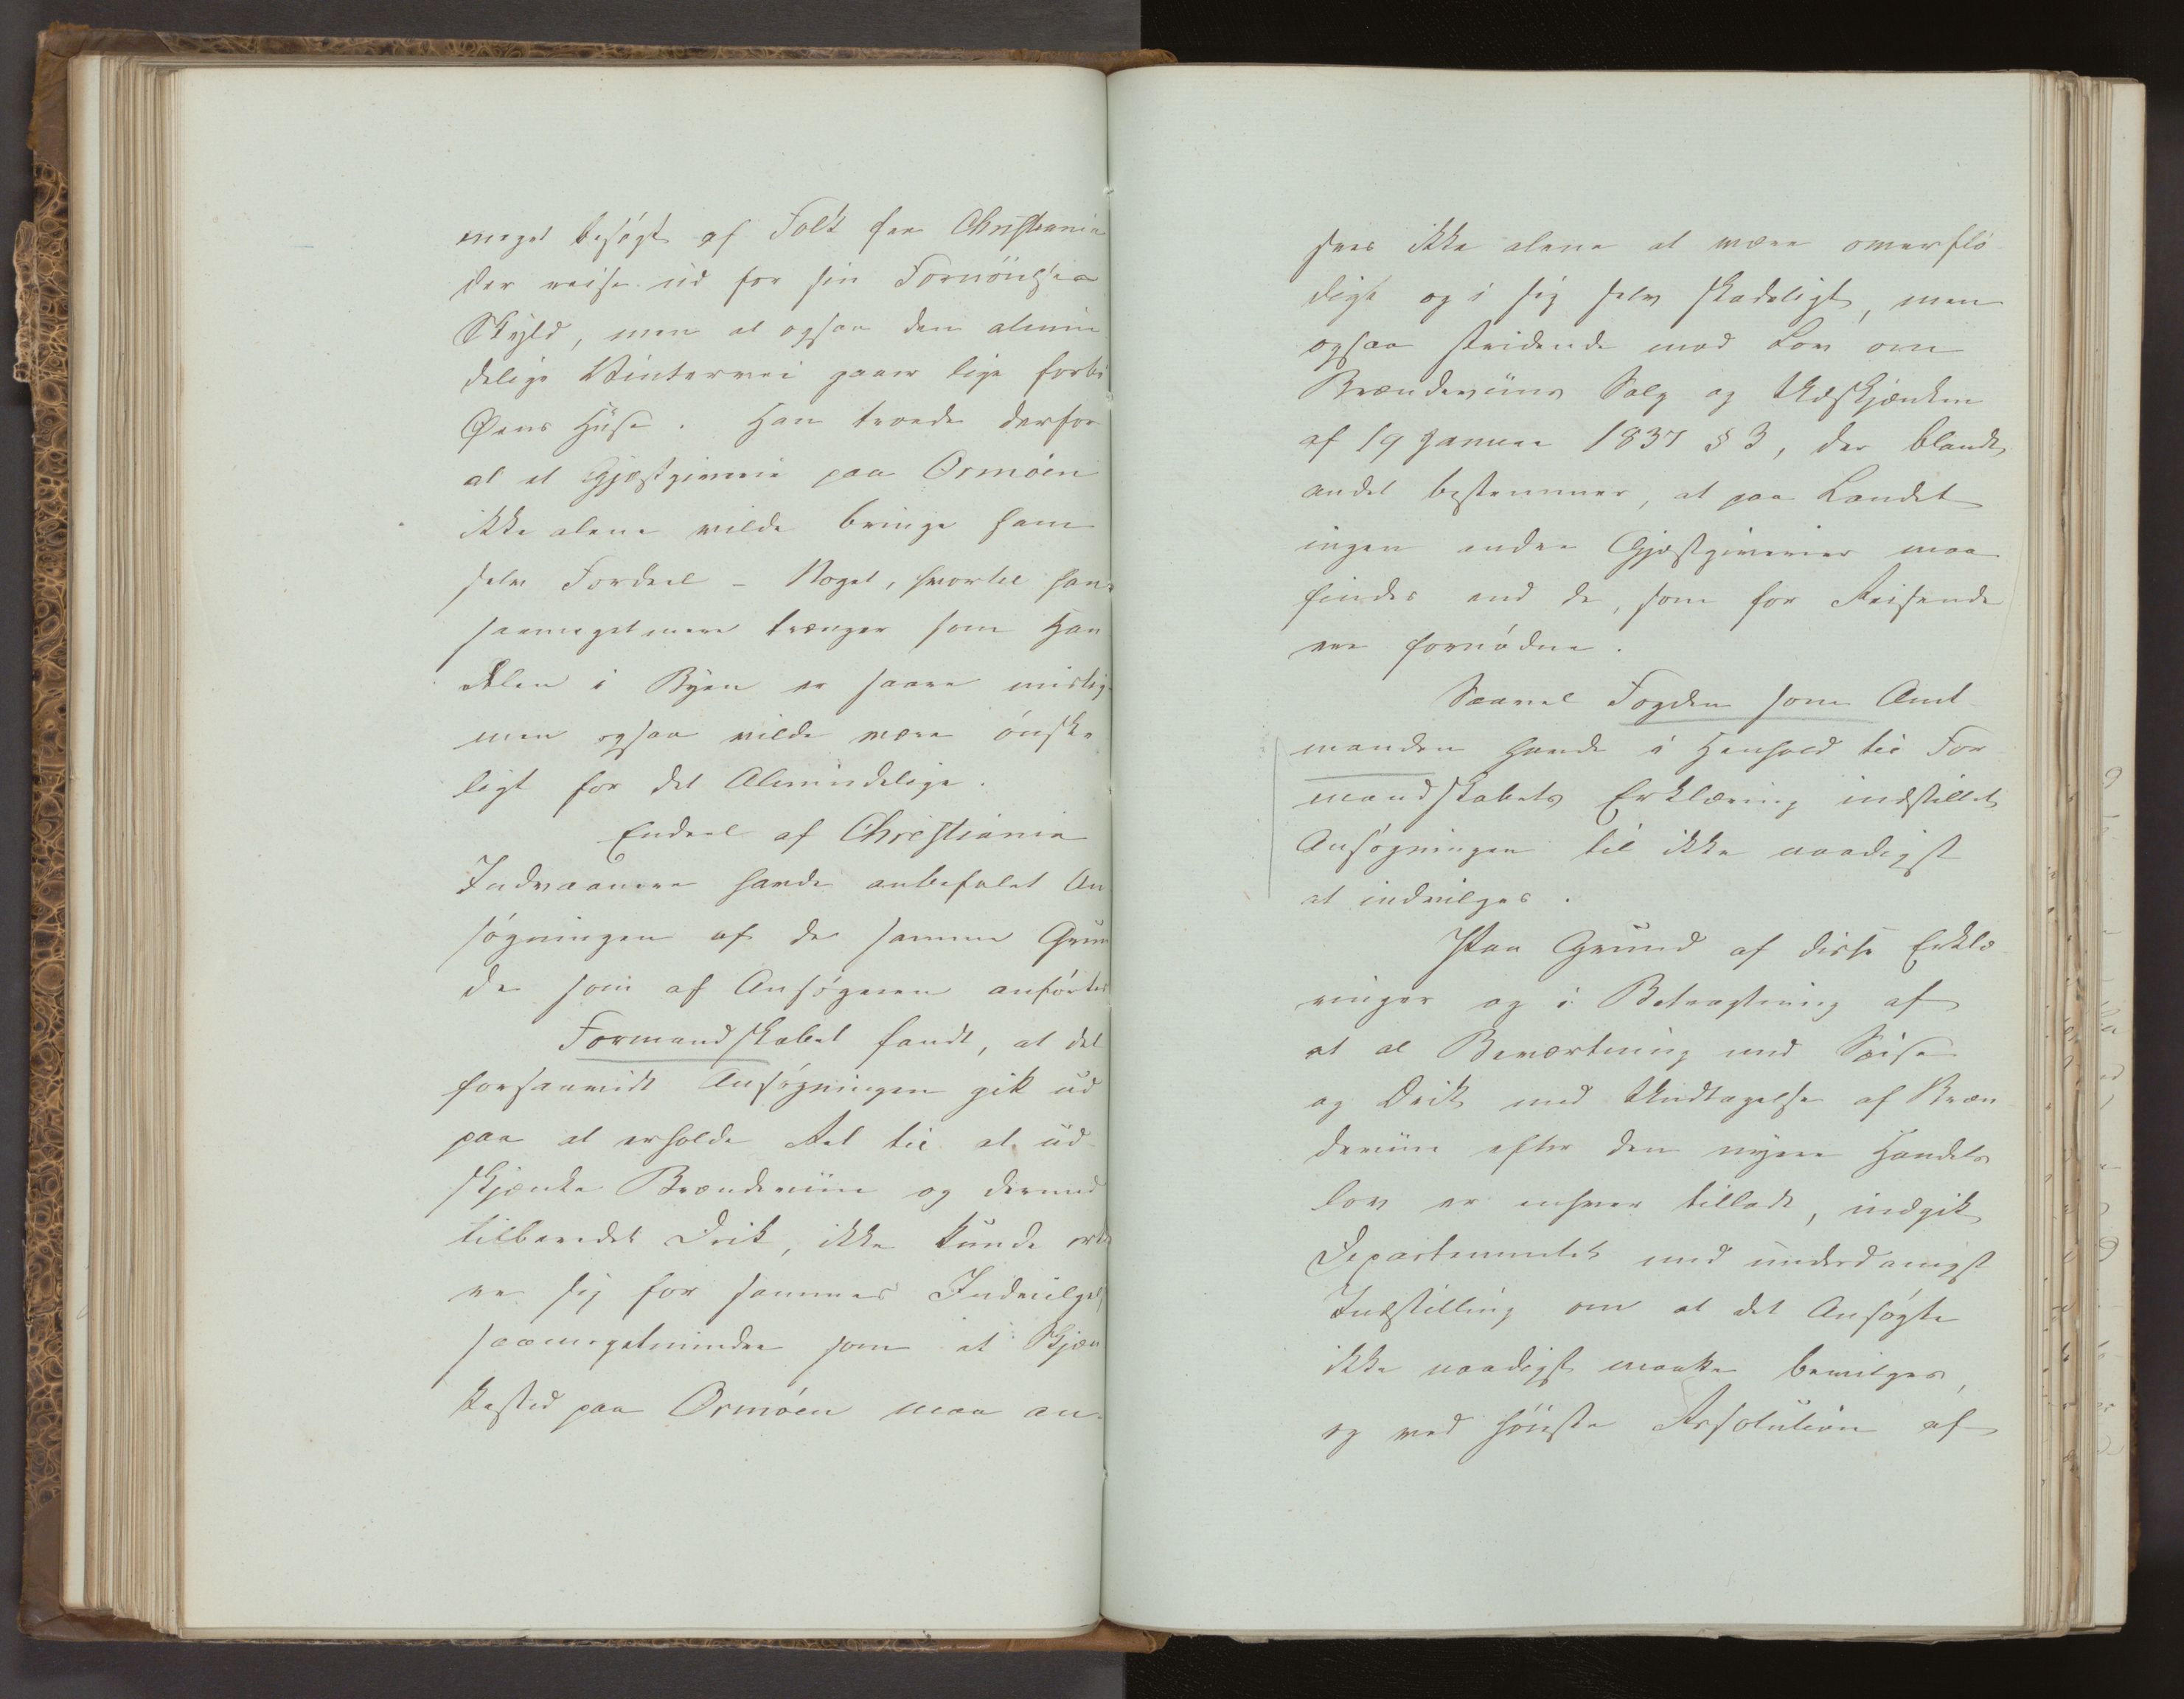 meget besøgt af Folk fra Christiania
der reise ud for sin Fornöielses
Skyld, men at ogsaa den almin
delige Vintervei gaaer lige forbi
Øens Huse. Han troede derfor
at et Gjæstgiverie paa Ormöen
ikke alene vilde bringe ham
selv Fordeel - Noget, hvortil han
saameget mere trænger som Han
delen i Byen er saare mislig
men ogsaa vilde være önske
ligt for det Almindelige.
Endeel af Christiania
Indvaanere havde anbefalet An
søgningen af de samme Grun
de som af Ansøgeren anförtes
Formandskabet fandt, at det
forsaavidt Ansøgningen gik ud
paa at erholde Ret til at ud-
skjænke Brændeviin og dermed
tilberedet Drik, ikke kunde erklæ
re sig for sammes Indvilgelse
saameget mindre som et Skjæn
kested paa Ormöen maa an-
sees ikke alene at være overflö
digt og i sig selv skadeligt, men
ogsaa stridende mod Lov om
Brændeviins Salg og Udskjænkn
af 19 Januar 1837 § 3, der blandt
andet bestemmer, at paa Landet
ingen andre Gjæstgiverier maa
findes end de, som for Reisende
ere fornödne.
Saavel Fogden som Amt
manden havde i Henhold til For
mandskabets Erklæring indstillet
Ansøgningen til ikke naadigst
at indvilges.
Paa Grund af disse Erklæ
ringer og i Betragtning af
at al Beværtning med Spise
og Drik med Undtagelse af Bræn
deviin efter den nyere Handels
lov er enhver tilladt, indgik
Departementet med underdanigst
Indstilling om at det Ansøgte
ikke naadigst maatte bevilges,
og ved höieste Resolution af